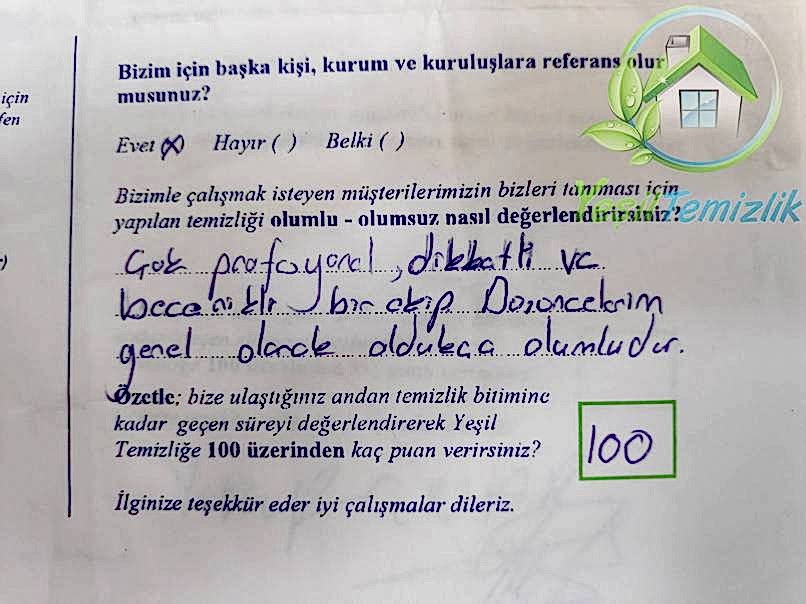 Bizim için başka kişi, kurum ve kuruluşlara referans olur
musunuz?
için
fen
Evet (X) Hayır ( ) Belki ( )
Bizimle çalışmak isteyen müşterilerimizin bizleri tanıması için
yapılan temizliği olumlu - olumsuz nasıl değerlendirirsiniz?
YeşilTemizlik
Çok profosyonel, dikkatli ve
becerikli bir ekip Düşüncelerim
genel olarak oldukça olumludur.
Özetle; bize ulaştığınız andan temizlik bitimine
kadar geçen süreyi değerlendirerek Yeşil
Temizliğe 100 üzerinden kaç puan verirsiniz?
100
İlginize teşekkür eder iyi çalışmalar dileriz.